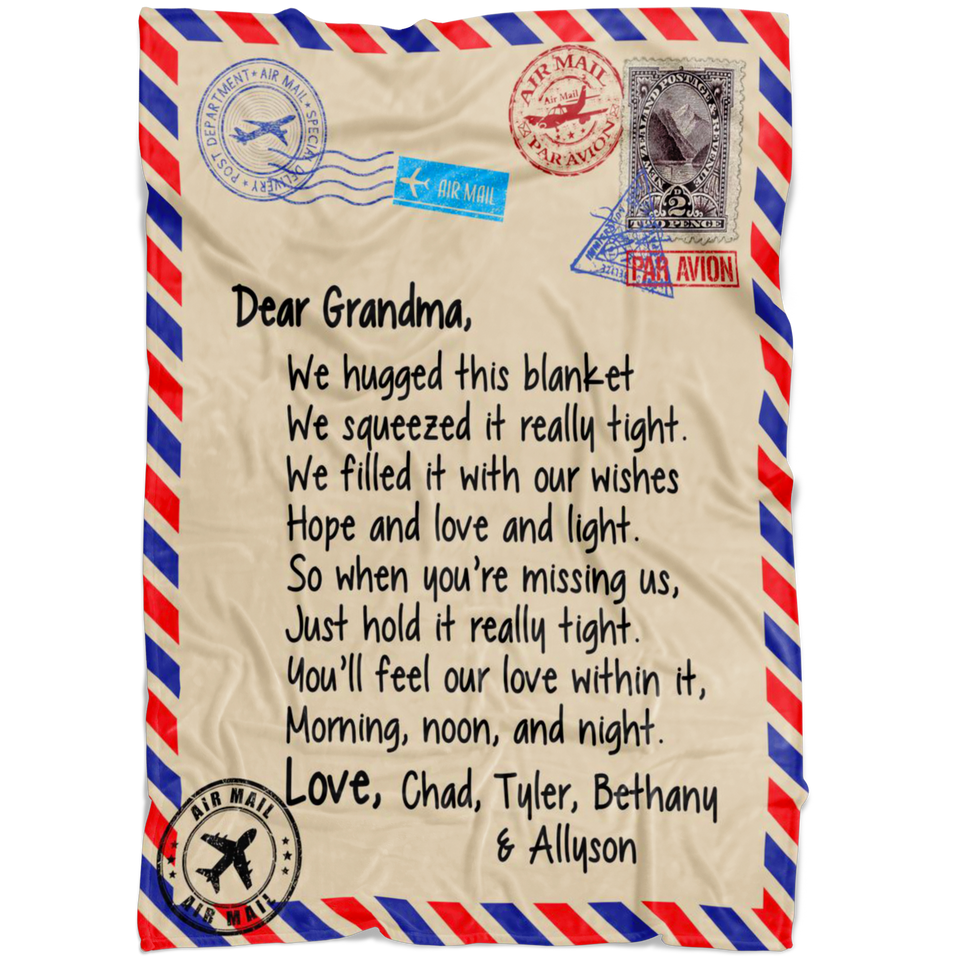 POST DEPARTMENT ★ AIR MAIL ★ SPECIAL DELIVERY ★
AIR MAIL
AIR MAIL
Air Mail
PAR AVION
ZEALAND POSTAGE & REVENUE
2
D
TWO PENCE
BELIZE
PAR AVION
Dear Grandma,
We hugged this blanket
We squeezed it really tight.
We filled it with our wishes
Hope and love and light.
So when you're missing us,
Just hold it really tight.
You'll feel our love within it,
Morning, noon, and night.
Love, Chad, Tyler, Bethany
& Allyson
AIR MAIL
AIR MAIL